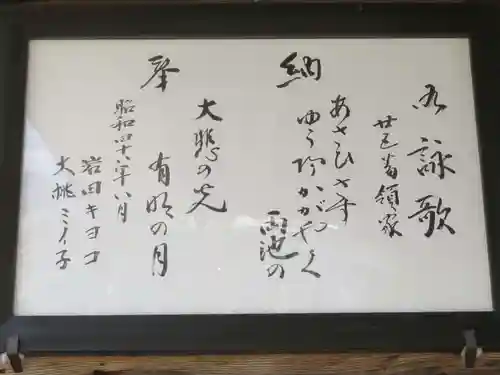 御詠歌
廿五番領家
奉納
あさひさす
ゆう陽かがやく
雨池の
大悲の光
有明の月
昭和四十八年八月
岩田キヨコ
大桃ミイ子